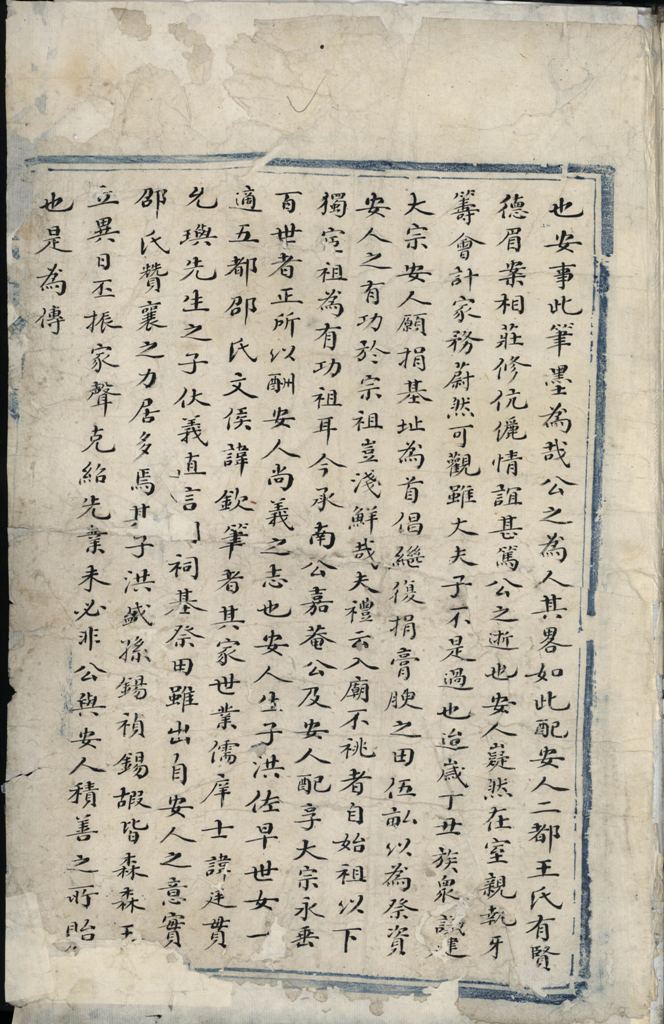 也安事此筆墨為哉公之為人其畧如此配安人二都王氏有賢
德眉案相莊修伉儷情誼甚篤公之逝也安人嶷然在室親執牙
籌會計家務蔚然可觀雖大夫子不是過也迨歲丁丑族衆議建
大宗安人願捐基址為首倡繼復捐膏腴之田伍畝以為祭資
安人之有功於宗祖豈淺鮮哉夫禮云入廟不祧者自始祖以下
獨 祖為有功祖耳今承南公嘉菴公及安人配享大宗永垂
百世者正所以酬安人尚義之志也安人生子洪佐早世女一
適五都邵氏文侯諱欽筆者其家世業儒庠士諱廷貫
允璵先生之子仗義直言 祠基祭田雖出自安人之意實
邵氏贊襄之力居多焉其子洪盛孫錫禎錫嘏皆森森玉
立異日丕振家聲克紹先業未必非公與安人積善之所貽
也是為傳